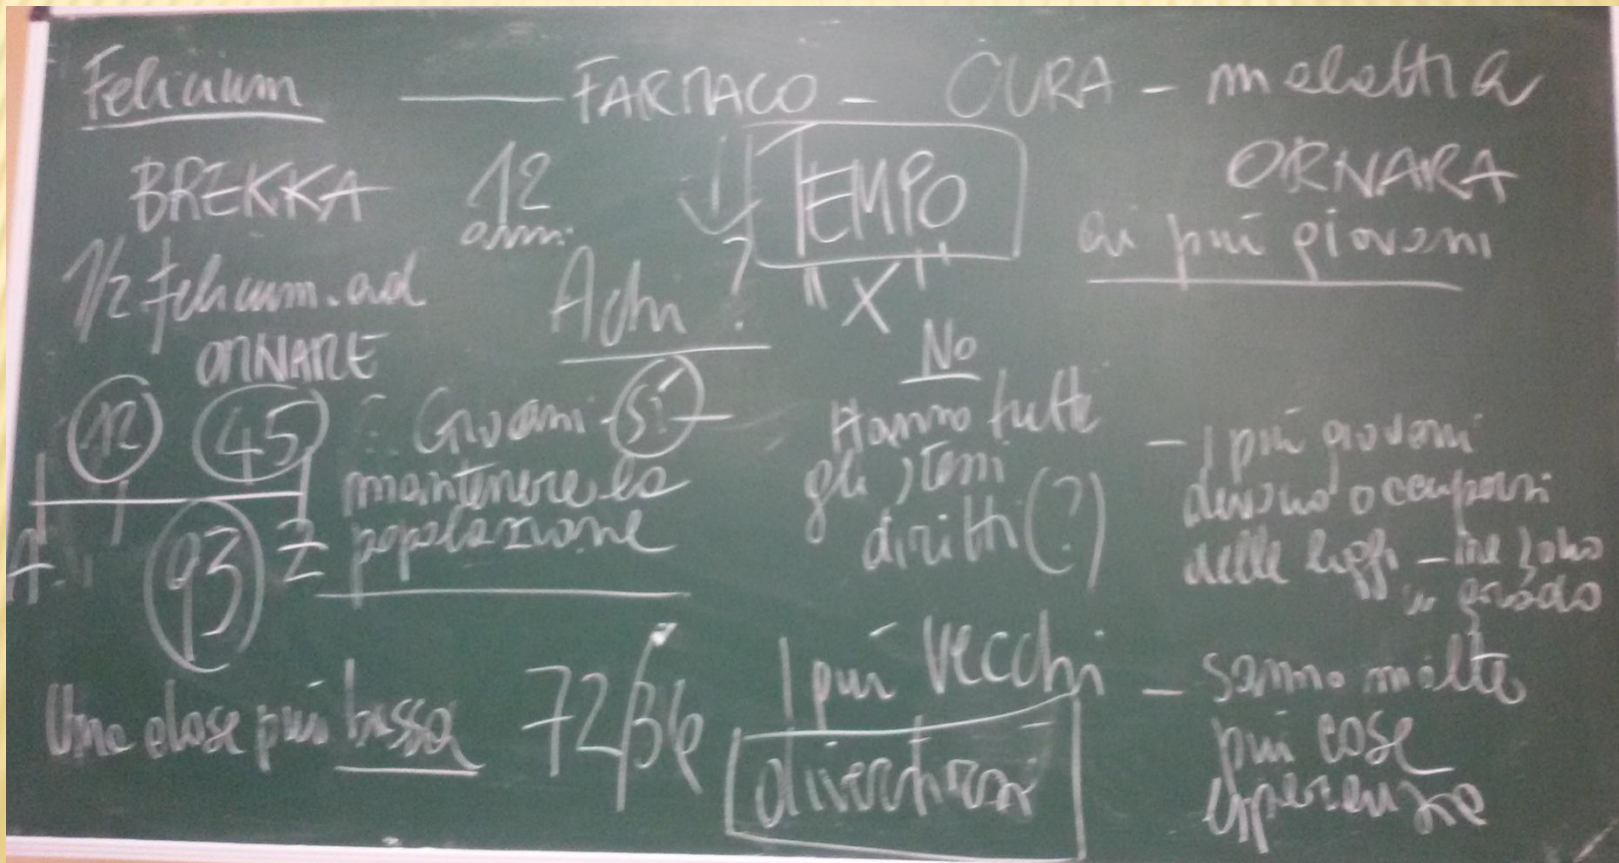 Felicium — FARMACO - CURA - malattia
BREKKA 12 anni TEMPO ORNARA
ai più giovani
1/2 felicium ad ORNARE
A chi ? "X"
No
12 45 Giovani sì
mantenere la popolazione
93
Hanno tutti gli stessi diritti (?)
- I più giovani
devono occuparsi
delle leggi - ne sono
in grado
Una dose più bassa 72/36
I più vecchi - sanno molte
più cose
esperienze
divertirsi